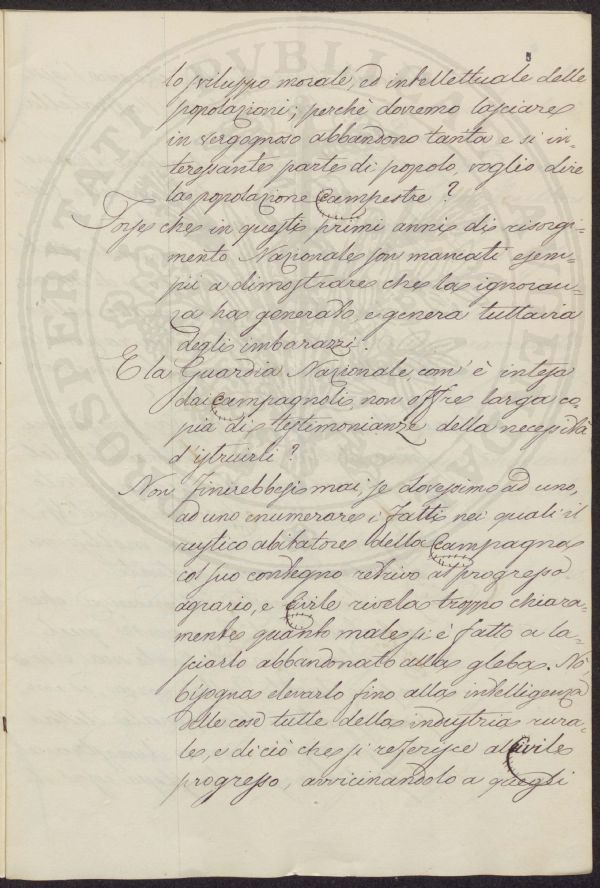 lo sviluppo morale, ed intellettuale delle
popolazioni; perchè dovremo lasciare
in vergognoso abbandono tanta e sì in=
teressante parte di popolo, voglio dire
la popolazione Campestre?
Forse che in questi primi anni di risorgi=
mento Nazionale son mancati esem=
pii a dimostrare che la ignoran=
za ha generato, e genera tuttavia
degli imbarazzi.
E la Guardia Nazionale, com' è intesa
dai Campagnoli, non offre larga co=
pia di testimonianze della necessità
d'istruirli?
Non finirebbesi mai, se dovessimo ad uno,
ad uno enumerare i fatti nei quali il
rustico abitatore della Campagna
col suo contegno retrivo al progresso
agrario, e Civile rivela troppo chiara=
mente, quanto male si è fatto a la=
sciarlo abbandonato alla gleba. No,
bisogna elevarlo fino alla intelligenza
delle cose tutte della industria rura=
le, e di ciò che si referisce al Civile
progresso, avvicinandolo a quegli
PROSPERITATI PVBLICAE